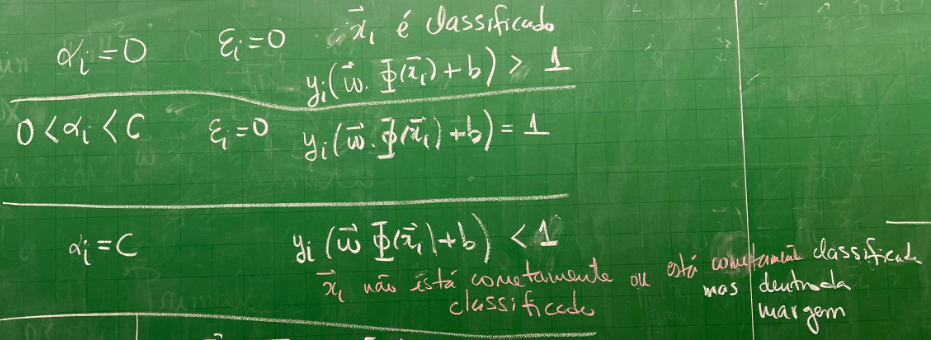 αᵢ = 0 εᵢ = 0 x⃗ᵢ é classificado
yᵢ(w⃗ . Φ(x⃗ᵢ) + b) > 1
0 < αᵢ < C εᵢ = 0 yᵢ(w⃗ . Φ(x⃗ᵢ) + b) = 1
αᵢ = C yᵢ (w⃗ Φ(x⃗ᵢ) + b) < 1
x⃗ᵢ não está corretamente ou está corretamente classificado
classificado mas dentro da
margem